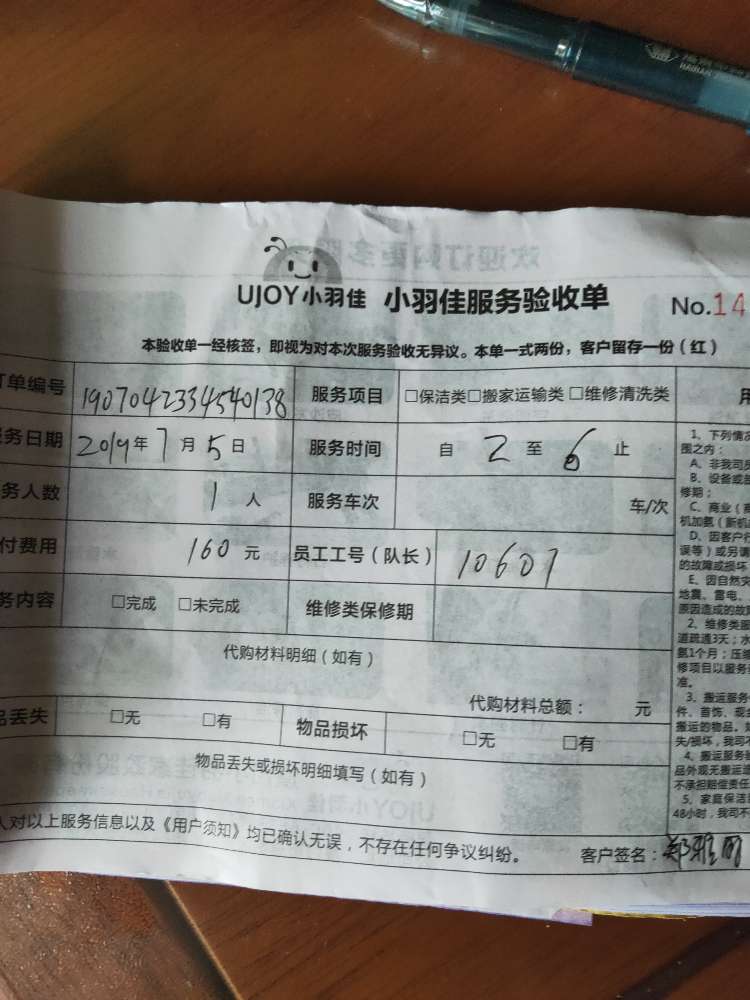 HAINAN
UJOY小羽佳 小羽佳服务验收单 No.14
本验收单一经核签，即视为对本次服务验收无异议。本单一式两份，客户留存一份（红）
订单编号 1907042334540138 服务项目 □保洁类□搬家运输类 □维修清洗类
服务日期 2019年7月5日 服务时间 自 2 至 6 止
务人数 1 人 服务车次 车/次
付费用 160 元 员工工号（队长） 10607
务内容 □完成 □未完成 维修类保修期
代购材料明细（如有）
代购材料总额： 元
品丢失 □无 □有 物品损坏 □无 □有
物品丢失或损坏明细填写（如有）
人对以上服务信息以及《用户须知》均已确认无误，不存在任何争议纠纷。 客户签名：郑雅
用
1、下列情况
围之内：
A、非我司
B、设备或
修期；
C、商业（
机加氨（新机
D、因客户行
误等）或另请
的故障或损坏
E、因自然灾
地震、雷电、
原因造成的故障
2、维修类服
道疏通3天；水
氨1个月；压缩
修项目以服务
准。
3、搬运服务
件、首饰、现金
搬运的物品。如
失/损坏，我司不
4、搬运服务
品外观无搬运造
不承担赔偿责任
5、家庭保洁
48小时，我司不